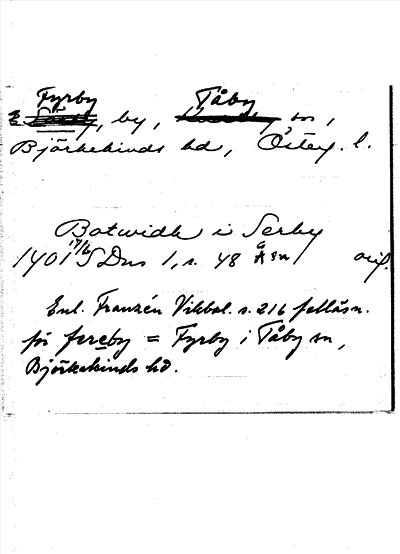 Fyrby Tåby
, by, sn,
Björkekinds hd, Östug. l.
Botwidh i Serby
1401 17/6 SDns 1, s. 48 Äsn orig.
Enl. Franzén Vikbol. s. 216 felläsn.
för fereby = Fyrby i Tåby sn,
Björkekinds hd.